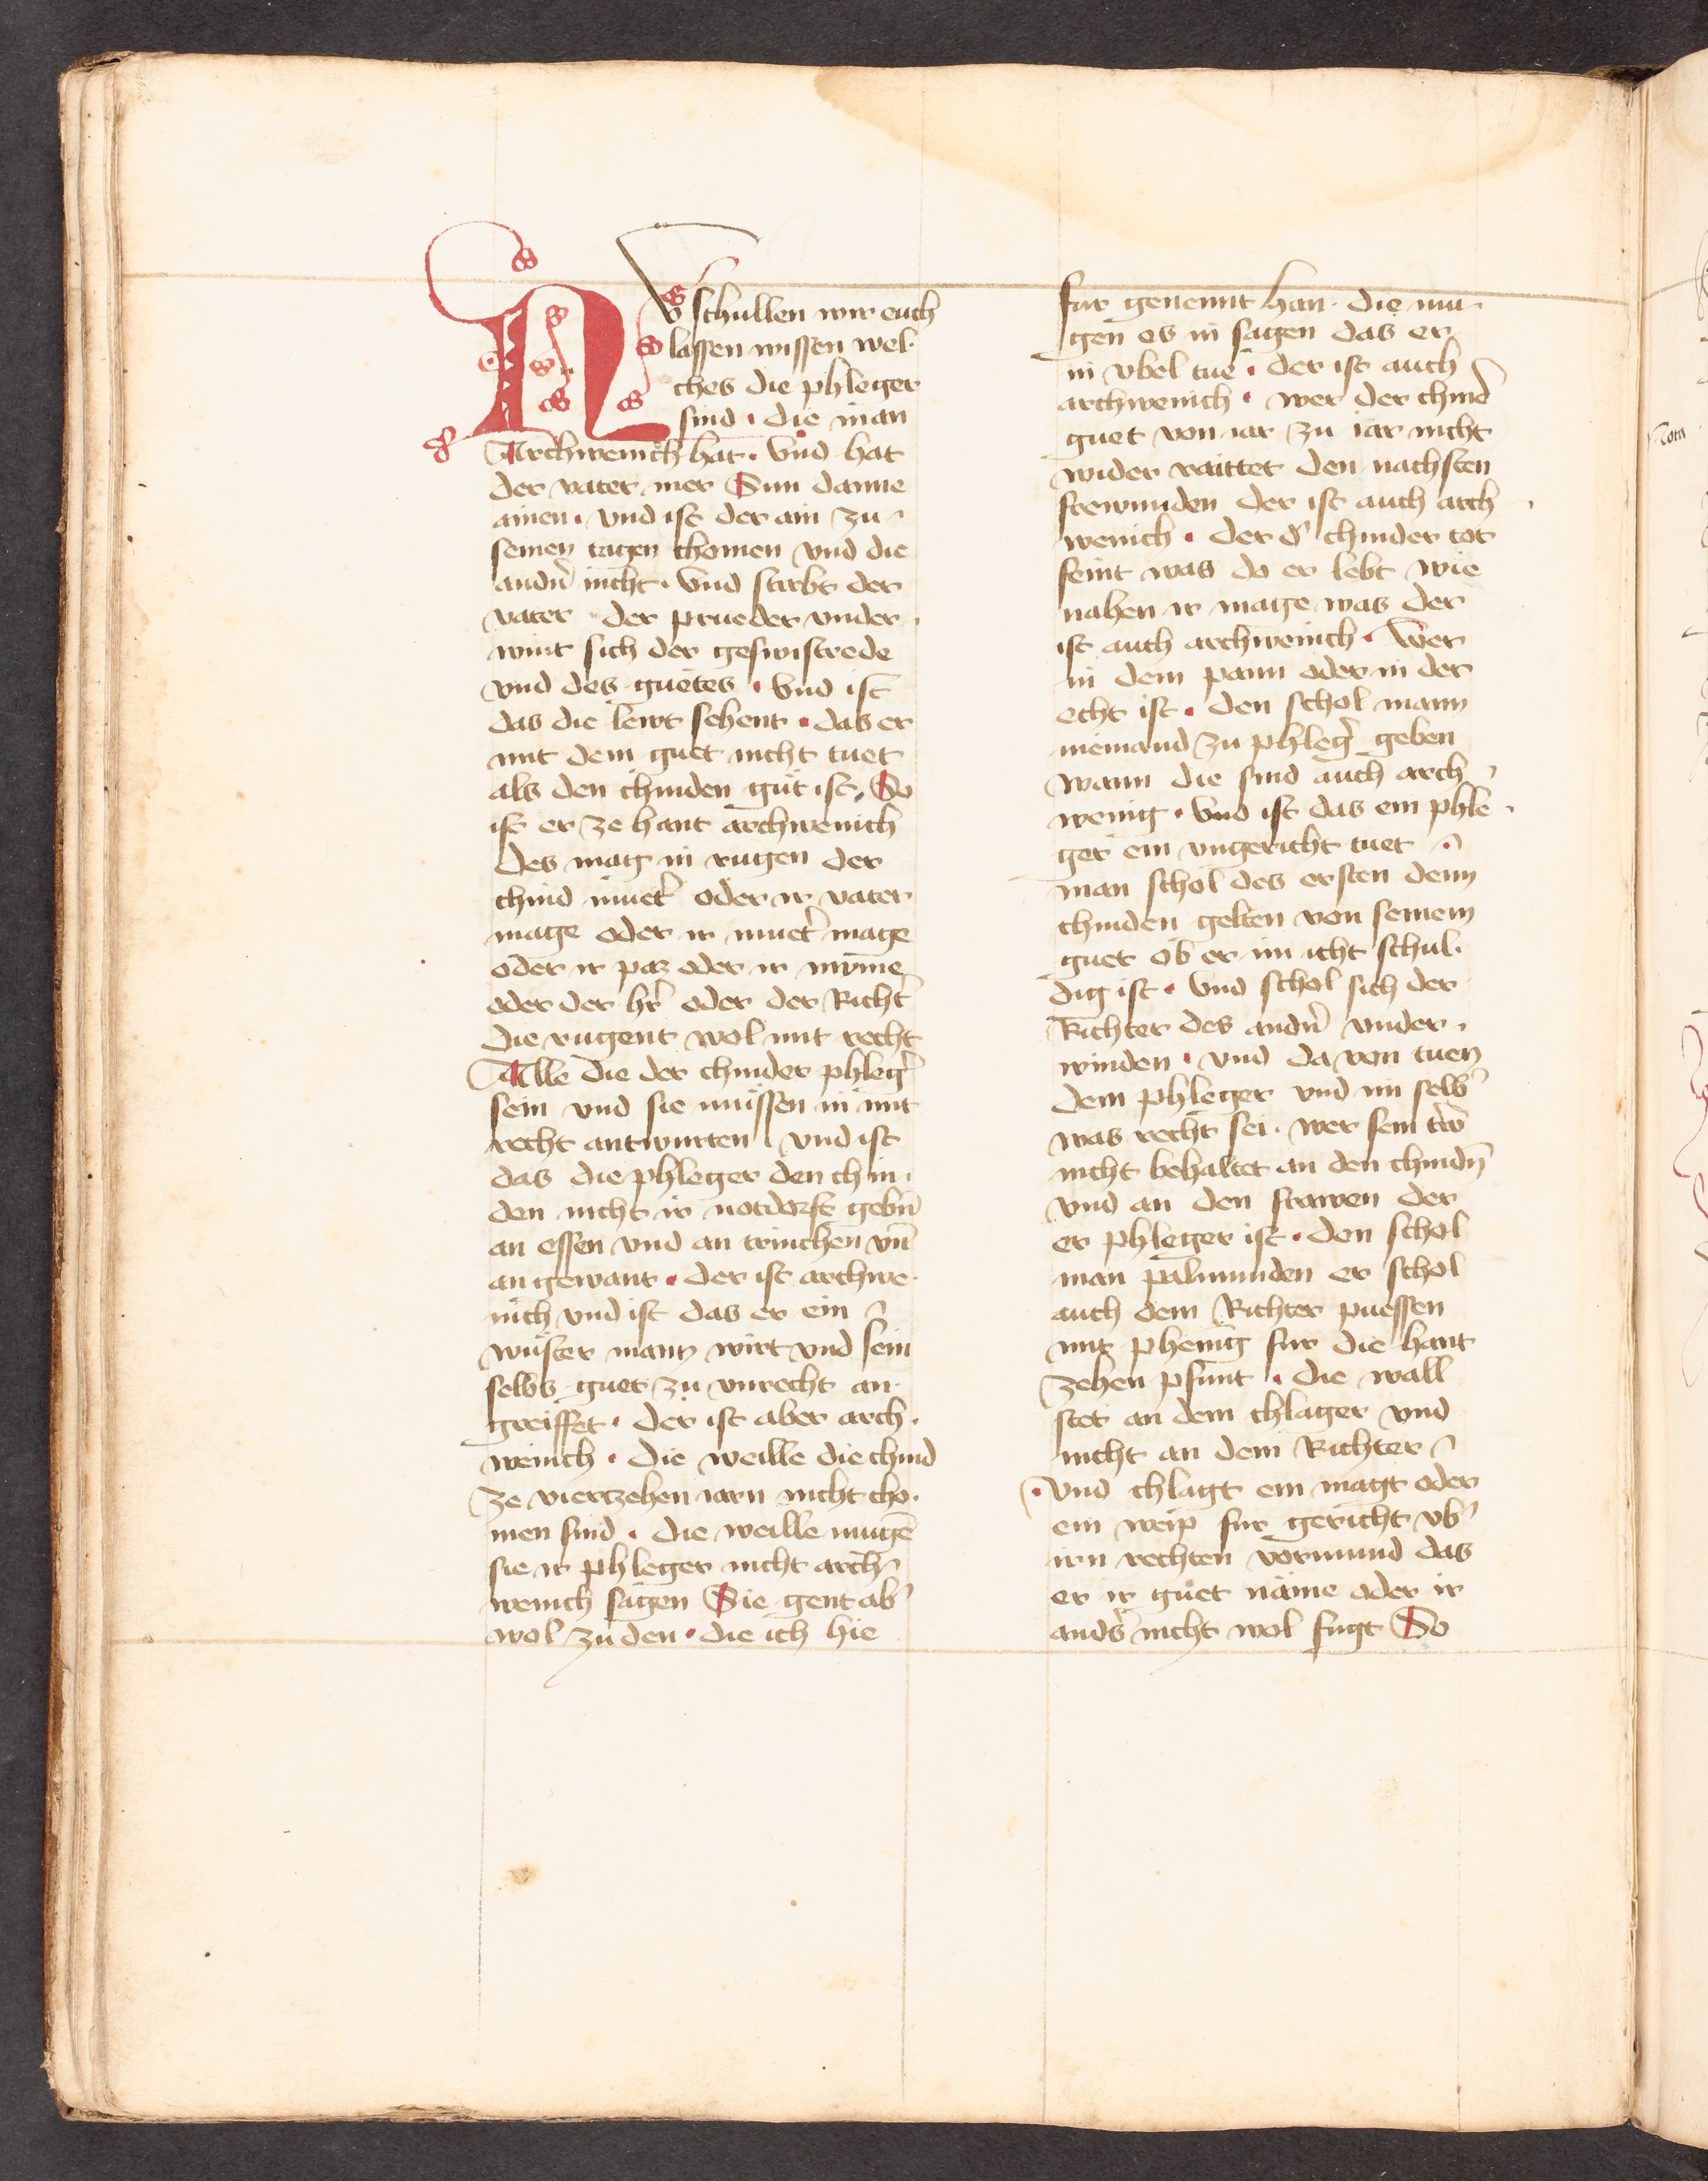 Nv schullen wir euch
lassen wissen wel-
ches die phleger
sind · die man
Archwenich hat · vnd hat
der vater mer Sun danne
ainen · vnd ist der ain zu
seinen tagen chomen vnd die
andn̄ nicht · vnd stirbt der
vater der prueder vnder-
wint sich der geswistrede
vnd des guetes · vnd ist
das die lewt sehent · das er
mit dem guet nicht tuet
als den chinden gut ist · So
ist er ze hant archwenich
des mag in rugen der
chind muet̄ oder ir vater
mage oder ir muet̄ mage
oder ir pas oder ir mvme
oder der hr̄ oder der Richt̄
die rugent wol mit recht
Alle die der chinder phleḡ
sein vnd sie mussen in mit
recht antwurten · vnd ist
das die phleger den chin-
den nicht ir notdorft gebn̄
an essen vnd an trinchen vn̄
an gewant · der ist archwe-
nich vnd ist das er ein
wuster mann wirt vnd sein
selbs guet zu vnrecht an-
greiffet · der ist aber arch-
wenich · die weille die chind
ze viertzehen iarn nicht cho-
men sind · die weille mugē
sie ir phleger nicht arch-
wenich sagen Sie gent ab̄
wol zu den · die ich hie
fur genennt han · die mu-
gen es in sagen das er
in vbel tue · der ist auch
archwenich · wer der chind̄
guet von iar zu iar nicht
wider raittet den nachsten
frewnnden der ist auch arch-
wenich · der d̄ chinder tot
feint was do er lebt wie
nahen ir mage was der
ist auch archwenich · wer
in dem pann oder in der
echt ist · den schol mann
niemand zu phleḡ geben
wann die sind auch arch-
wenig · vnd ist das ein phle-
ger ein vngericht tuet
man schol des ersten denn
chinden gelten von seinem
guet ob er im icht schul-
dig ist · vnd schol sich der
Richter des andn̄ vnder-
winden · vnd da von tuen
dem phleger vnd im selb̄
was recht sei · wer sein trw̄
nicht behaltet an den chindn̄
vnd an den frawen der
er phleger ist · den schol
man palmunden er schol
auch dem Richter puessen
mit phenīg fur die hant
zehen pfunt · die wall
stet an dem chlager vnd
nicht an dem Richter
· vnd chlagt ein magt oder
ein weip fur gericht vb̄
irn rechten vormund das
er ir guet näme oder ir
ands̄ nicht wol fugt So